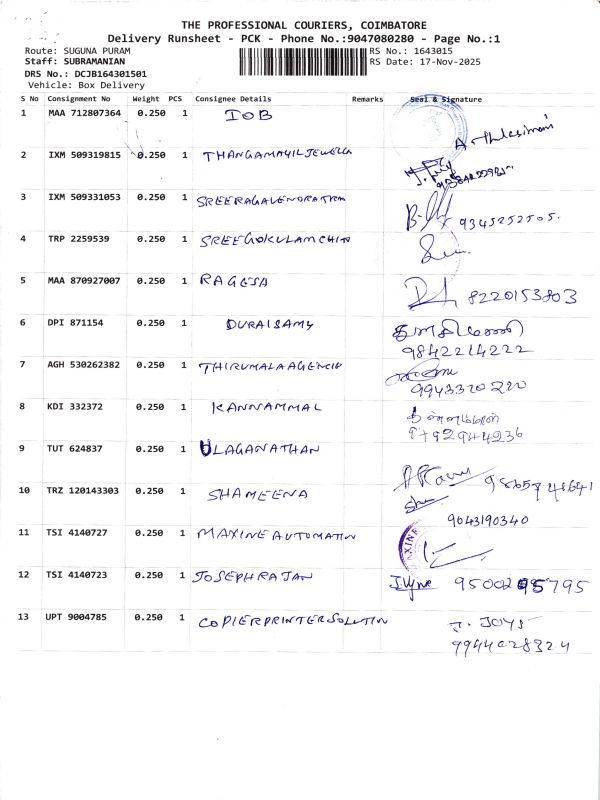 THE PROFESSIONAL COURIERS, COIMBATORE
Delivery Runsheet - PCK - Phone No.:9047080280 - Page No.:1
Route: SUGUNA PURAM RS No.: 1643015
Staff: SUBRAMANIAN RS Date: 17-Nov-2025
DRS No.: DCJB164301501
Vehicle: Box Delivery
S No Consignment No Weight PCS Consignee Details Remarks Seal & Signature
1 MAA 712807364 0.250 1 IOB
2 IXM 509319815 0.250 1 THANGAMAYIL JEWELLA
3 IXM 509331053 0.250 1 SREERAGAVENDRATRA
9345252505.
4 TRP 2259539 0.250 1 SREEGOKULAMCHIT
5 MAA 870927007 0.250 1 RAGESA
8220153803
6 DPI 871154 0.250 1 DURAISAMY
9842214222
7 AGH 530262382 0.250 1 THIRUMALAAGENCIE
9943320220
8 KDI 332372 0.250 1 KANNAMMAL
9 TUT 624837 0.250 1 ULAGANATHAN
10 TRZ 120143303 0.250 1 SHAMEENA
9043190340
11 TSI 4140727 0.250 1 MAXINE AUTOMATION
12 TSI 4140723 0.250 1 JOSEPHRAJAN
13 UPT 9004785 0.250 1 COPIERPRINTERSOLUTION J. JOYS
9944028324